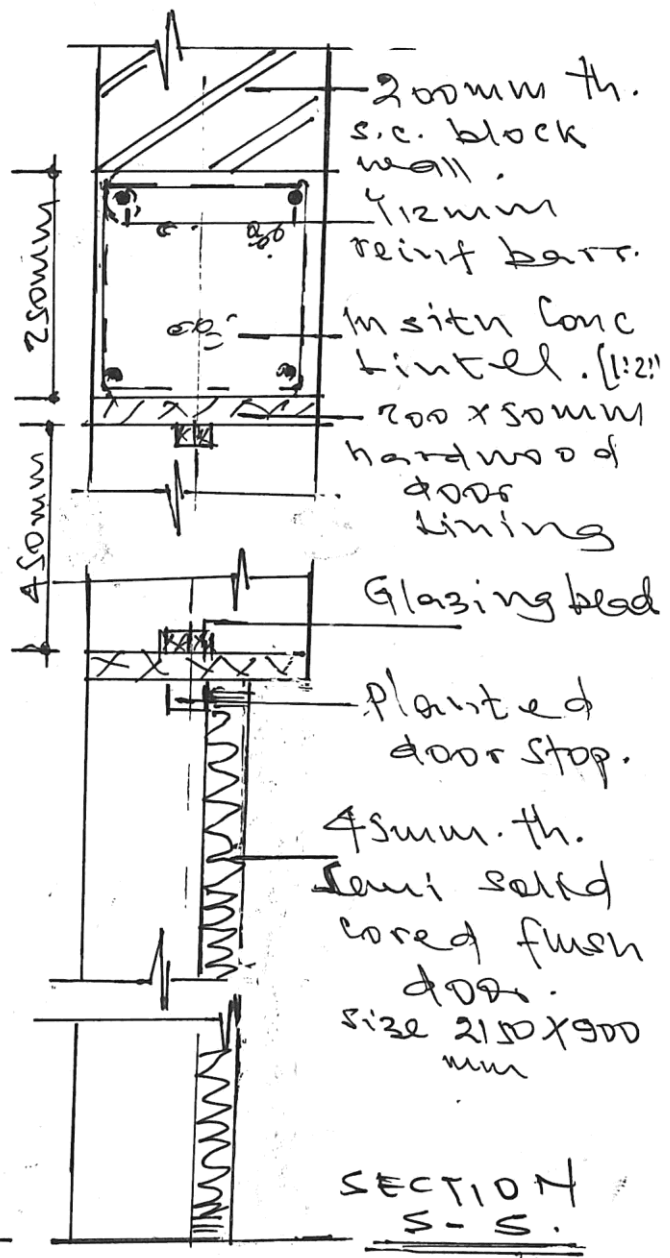 200mm th.
s.c. block
wall.
Y12mm
reinf barr.
250mm
In situ Conc
Lintel. (1:2:
200 x 50mm
hardwood
door
Lining
450mm
Glazing bead
Planted
door stop.
45mm. th.
Semi solid
cored flush
door.
size 2150 x 900
mm
SECTION
S-S.